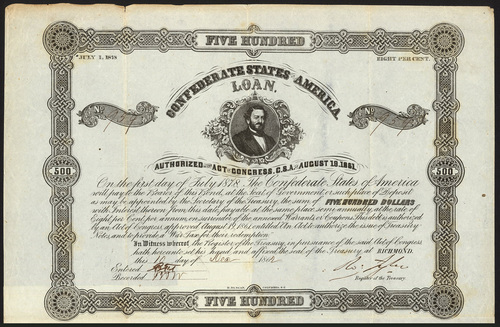 FIVE HUNDRED
JULY 1, 1878
EIGHT PER CENT.
CONFEDERATE STATES AMERICA
LOAN,
No
No
AUTHORIZED BY ACT OF CONGRESS, C.S.A. OF AUGUST 19, 1861.
500
500
On the first day of July 1878, The Confederate States of America
will pay to the Bearer of this Bond, at the seat of Government, or such place of Deposit
as may be appointed by the Secretary of the Treasury, the sum of FIVE HUNDRED DOLLARS,
with Interest thereon from this date, payable at the same place, semi annually, at the rate of
Eight per Cent. per annum, on surrender of the annexed Warrants or Coupons. This debt is authorized
By an Act of Congress, approved August 19, 1861, entitled An Act to authorize the issue of Treasury
Notes, and to provide a War Tax for their redemption.
In Witness whereof, the Register of the Treasury, in pursuance of the said Act of Congress
hath hereunto set his hand, and affixed the seal of the Treasury, at RICHMOND,
this day of 186
Entered
Recorded
Register of the Treasury.
FIVE HUNDRED